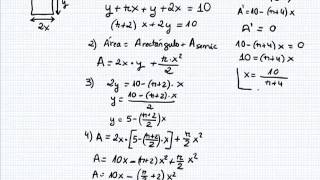 y
2x
y + πx + y + 2x = 10
(π+2)x + 2y = 10
2) Área = A rectángulo + A semic
A = 2x·y + π·x²/2
3) 2y = 10 - (π+2)·x
y = (10 - (π+2)·x)/2
y = 5 - ((π+2)/2)x
4) A = 2x·[5 - ((π+2)/2)·x] + π/2 x²
A = 10x - (π+2)x² + π/2 x²
A = 10x - (π/2 + 2)x²
A' = 10 - (π+4)x
A' = 0
10 - (π+4)x = 0
10 = (π+4)x
x = 10/(π+4)